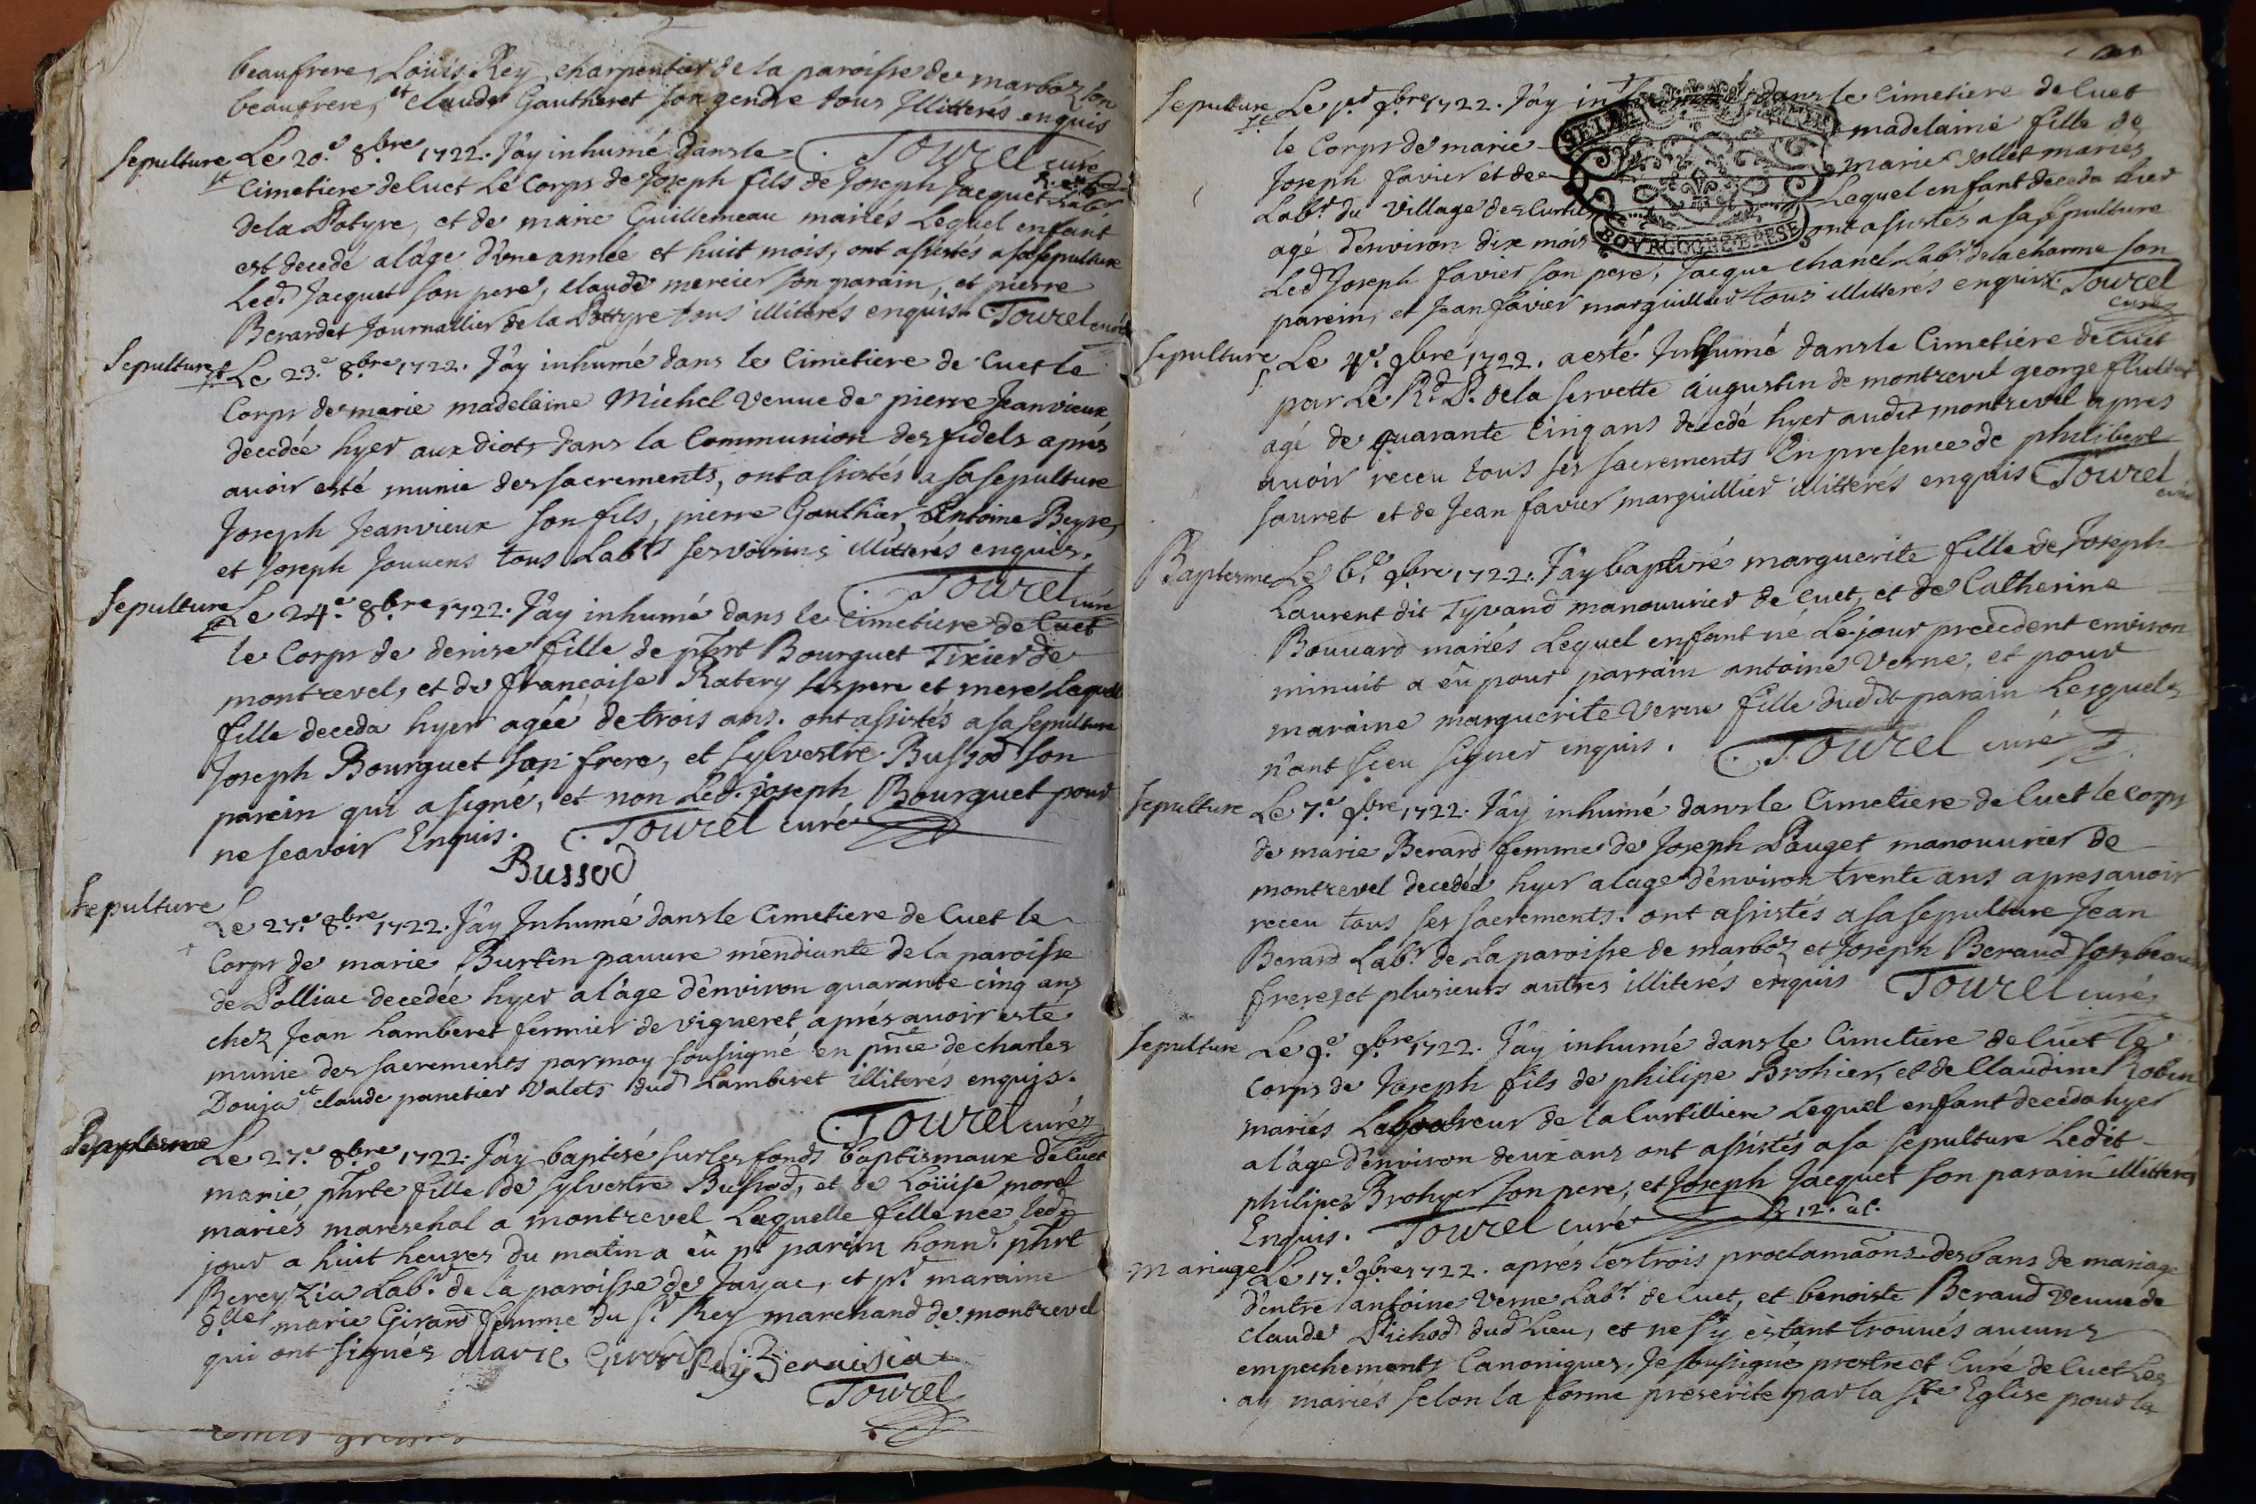 beaufrere, Loüis Rey charpentier de la paroisse de marboz son
beaufrere, et claude Gautheret son gendre tous Illitterés enquis
Tourel curé
Sepulture Le 20.e 8.bre 1722. J'ay inhumé dans le
Cimetiere de Cuet Le Corps de Joseph fils de Joseph Jacquet Lab.r
de la Potyre, et de marie Guillemeau mariés Lequel enfant
est decedé a l'age d'vne année et huit mois, ont assistés a sa sepulture
Led. Jacquet son pere, claude mercier son parain, et pierre
Berardet Journallier de la Pottyre tous illitérés enquis. Tourel curé
Sepulture Le 23.e 8.bre 1722. J'ay inhumé dans le Cimetiere de Cuet le
Corps de marie madelaine Michel Veuue de pierre Jeanvieux
decedée hyer aux diots dans la Communion des fidels aprés
auoir esté munie des sacrements, ont assistés a sa sepulture
Joseph Jeanvieux son fils, pierre Gauthier, Antoine Beyre,
et Joseph Jouuens tous Lab.rs ses voisins illitterés enquis.
Tourel curé
Sepulture Le 24.e 8.bre 1722. J'ay inhumé dans le Cimetiere de Cuet
le Corps de denise fille de phrt Bourguet Tixier de
montrevel, et de françoise Ratery ses pere et mere, laquelle
fille deceda hyer agée de trois ans. ont assistés a sa sepulture
Joseph Bourguet son frere, et sylvestre Bussod son
parein qui a signé, et non Led. joseph Bourguet pour
ne scavoir Enquis. Tourel curé
Bussod
Sepulture
Le 27.e 8.bre 1722. J'ay Inhumé dans le Cimetiere de Cuet le
Corps de marie Burtin pauure mendiante de la paroisse
de Polliac decedée hyer a l'age d'environ quarante cinq ans
chez Jean Lamberet fermier de vigueret, aprés auoir esté
munie des sacrements par moy soussigné en pnce de charles
Douja et claude panetier Valets dud Lamberet illiterés enquis.
Tourel curé
Le 27.e 8.bre 1722. J'ay baptisé sur les fonds baptismaux de Cuet
marie phrte fille de sylvestre Bussod, et de Loüise morel
mariés mareschal a montrevel Laquelle fille née led
jour a huit heures du matin a eû pr parein honn. phrt
Bereyziat Lab.r de la paroisse de Jayac, et pr. maraine
d.lle marie Girard femme du s.r Rey marchand de montrevel
qui ont signés Marie Girard Rey
Tourel
Sepulture Le p.er 9.bre 1722. J'ay in dans le Cimetiere de Cuet
le Corps de marie madelaine fille de
Joseph favier et de marie Collet mariés
Lab.r du Village des Curtils Lequel enfant deceda hier
agé d'environ dix mois ont assistés a sa sepulture
Led Joseph favier son pere, Jacque chanel Lab.r de la charme son
parein, et Jean favier marguillier tous illitterés enquis. Tourel
curé
Sepulture Le 4.e 9.bre 1722. a esté Inhumé dans le Cimetiere de Cuet
par Le R.d P. de la servette Augustin de montrevel george
agé de quarante Cinq ans decedé hyer audit montrevel apres
auoir receu tous ses sacrements En presence de philibert
sauret et de Jean favier marguillier illitterés enquis Tourel
curé
Baptesme Le 6.e 9.bre 1722. J'ay baptisé marguerite fille de Joseph
Laurent dit Tyvand manouurier de Cuet, et de Catherine
Bouuard mariés Lequel enfant né Le jour precedent environ
minuit a eû pour parrain antoine Verne, et pour
maraine marguerite Verne fille dudit parain Lesquels
n'ont sceu signer enquis. Tourel curé
Sepulture Le 7.e 9.bre 1722. J'ay inhumé dans le Cimetiere de Cuet le Corps
de marie Berard femme de Joseph Pauget manouurier de
montrevel decedée hyer a l'age d'environ trente ans apres auoir
receu tous ses sacrements. ont assistés a sa sepulture Jean
Berard Lab.r de La paroisse de marboz et Joseph Beraud son beau
frere, et plusieurs autres illiterés enquis Tourel curé
Sepulture Le 9.e 9.bre 1722. J'ay inhumé dans le Cimetiere de Cuet le
Corps de Joseph fils de philipe Brohier, et de Claudine Robin
mariés Laboureur de la Curtilliere Lequel enfant deceda hyer
a l'age d'environ deux ans ont assistés a sa sepulture Ledit
philipe Brohyer son pere, et Joseph Jacquet son parain illitterés
Enquis. Tourel curé
Mariage Le 17.e 9.bre 1722. aprés les trois proclamaôns des bans de mariage
d'entre antoine Verne Lab.r de Cuet, et benoiste Beraud Veuue de
claude Pichod dud Lieu, et ne s'y estant trouués aucuns
empechements Canoniques, Je soussigné prestre et Curé de Cuet Les
ay mariés selon la forme prescrite par la s.te Eglise pour la